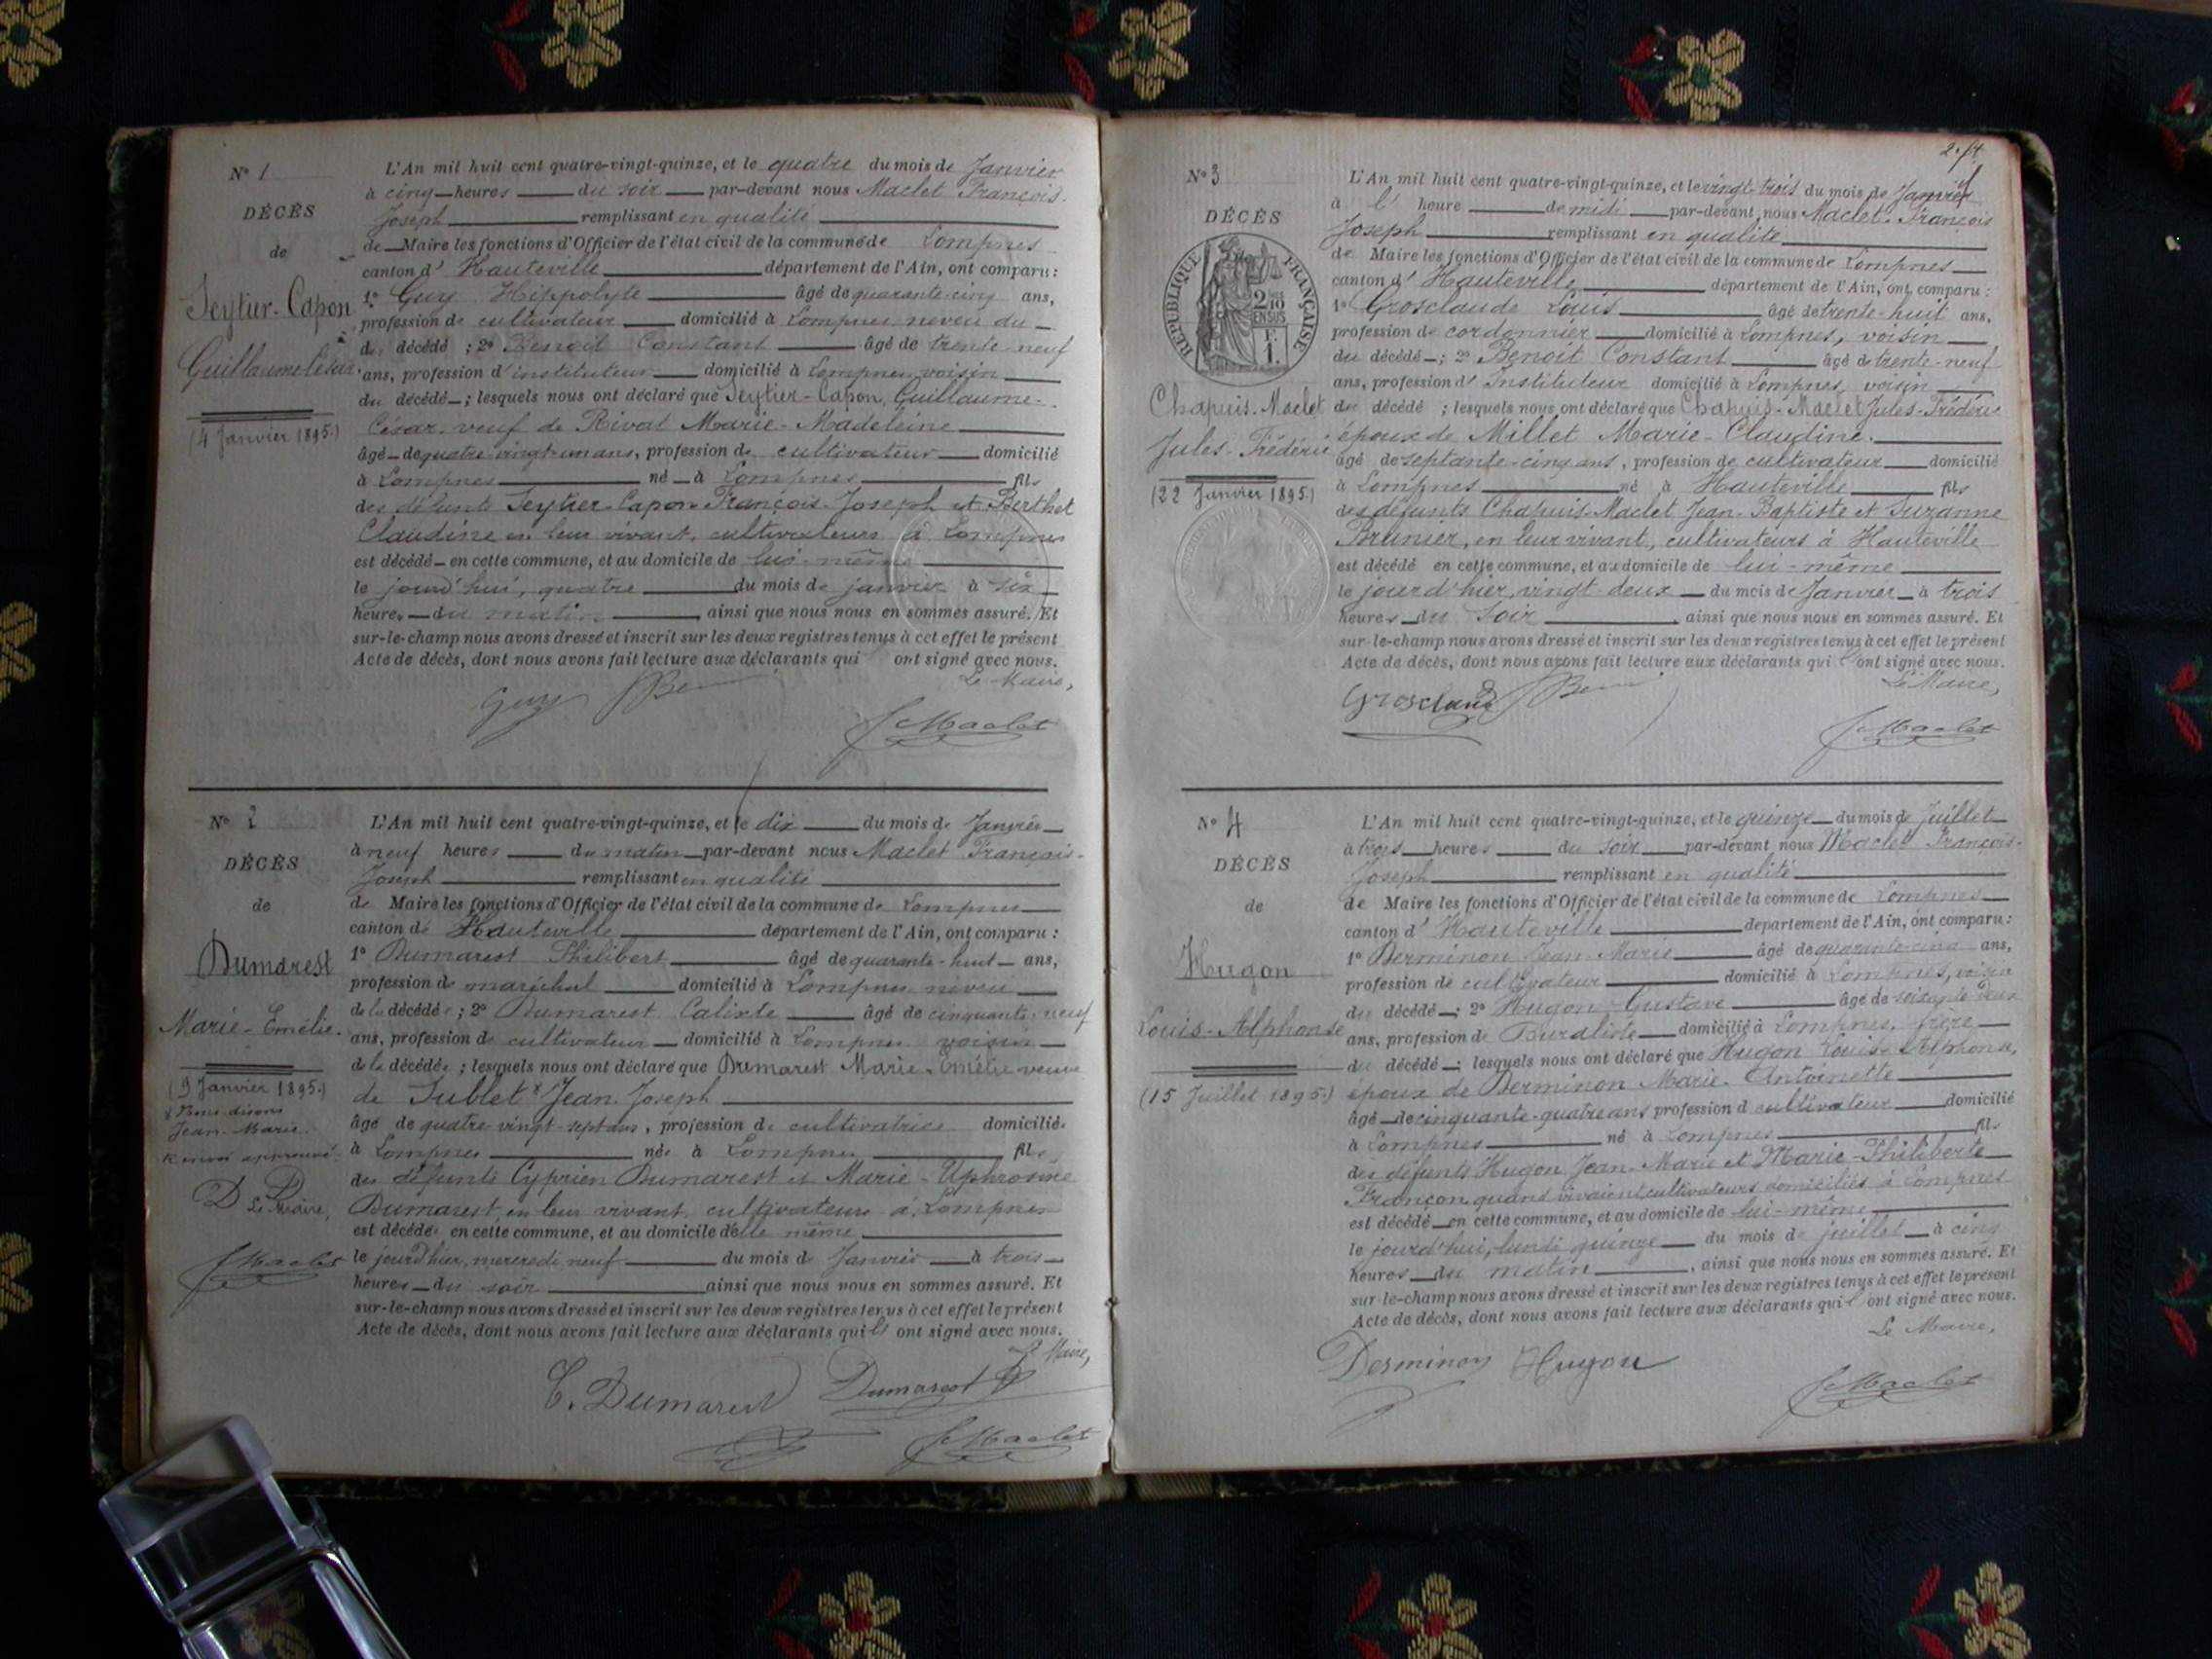 N° 1
DÉCÈS
de
Seytier-Capon
Guillaume César.
(4 Janvier 1895.)
L'An mil huit cent quatre-vingt-quinze, et le quatre du mois de Janvier
à cinq heures du soir par-devant nous Maclet François-
Joseph remplissant en qualité
de Maire les fonctions d'Officier de l'état civil de la commune de Lompnes
canton d' Hauteville département de l'Ain, ont comparu :
1° Guy Hippolyte âgé de quarante-cinq ans,
profession de cultivateur domicilié à Lompnes neveu du
du décédé ; 2° Benoit Constant âgé de trente-neuf
ans, profession d'instituteur domicilié à Lompnes voisin
du décédé ; lesquels nous ont déclaré que Seytier-Capon, Guillaume-
César, veuf de Rivat Marie-Madeleine
âgé de quatre-vingt-un ans, profession de cultivateur domicilié
à Lompnes né à Lompnes fils
des défunts Seytier-Capon François-Joseph et Berthet
Claudine en leur vivant, cultivateurs à Lompnes
est décédé en cette commune, et au domicile de lui-même
le jourd'hui, quatre du mois de janvier à six
heures du matin ainsi que nous nous en sommes assuré. Et
sur-le-champ nous avons dressé et inscrit sur les deux registres tenus à cet effet le présent
Acte de décès, dont nous avons fait lecture aux déclarants qui ont signé avec nous.
Le Maire,
Guy
Maclet
N° 2
DÉCÈS
de
Dumarest
Marie-Emélie.
(9 Janvier 1895.)
x Nous disons
Jean-Marie.
Renvoi approuvé.
D D
Le Maire,
Maclet
L'An mil huit cent quatre-vingt-quinze, et le dix du mois de Janvier
à neuf heures du matin par-devant nous Maclet François-
Joseph remplissant en qualité
de Maire les fonctions d'Officier de l'état civil de la commune de Lompnes
canton de Hauteville département de l'Ain, ont comparu :
1° Dumarest Philibert âgé de quarante-huit ans,
profession de maréchal domicilié à Lompnes neveu
de la décédée ; 2° Dumarest Calixte âgé de cinquante-neuf
ans, profession de cultivateur domicilié à Lompnes voisin
de la décédée ; lesquels nous ont déclaré que Dumarest Marie-Emélie veuve
de Sublet x Jean-Joseph
âgée de quatre-vingt-sept ans, profession de cultivatrice domiciliée
à Lompnes née à Lompnes fille
des défunts Cyprien Dumarest et Marie-Uphrosine
Dumarest, en leur vivant, cultivateurs à Lompnes
est décédée en cette commune, et au domicile d'elle même
le jourd'hier, mercredi, neuf du mois de Janvier à trois
heures du soir ainsi que nous nous en sommes assuré. Et
sur-le-champ nous avons dressé et inscrit sur les deux registres tenus à cet effet le présent
Acte de décès, dont nous avons fait lecture aux déclarants qui ont signé avec nous.
Le Maire,
C. Dumarest Dumarest
Maclet
N° 3
DÉCÈS
RÉPUBLIQUE FRANÇAISE
2/10 EN SUS
1 F.
Chapuis-Maclet
Jules-Frédéric
(22 Janvier 1895)
L'An mil huit cent quatre-vingt-quinze, et le vingt-trois du mois de Janvier
à l' heure de midi par-devant nous Maclet-François
Joseph remplissant en qualité
de Maire les fonctions d'Officier de l'état civil de la commune de Lompnes
canton d' Hauteville département de l'Ain, ont comparu :
1° Grosclaude Louis âgé de trente-huit ans,
profession de cordonnier domicilié à Lompnes, voisin
du décédé ; 2° Benoit Constant âgé de trente-neuf
ans, profession d' Instituteur domicilié à Lompnes, voisin
du décédé ; lesquels nous ont déclaré que Chapuis-Maclet Jules-Frédéric
époux de Millet Marie-Claudine.
âgé de septante-cinq ans, profession de cultivateur domicilié
à Lompnes né à Hauteville fils
des défunts Chapuis-Maclet Jean-Baptiste et Suzanne
Brunier, en leur vivant, cultivateurs à Hauteville
est décédé en cette commune, et au domicile de lui-même
le jourd'hier, vingt-deux du mois de Janvier à trois
heures du soir ainsi que nous nous en sommes assuré. Et
sur-le-champ nous avons dressé et inscrit sur les deux registres tenus à cet effet le présent
Acte de décès, dont nous avons fait lecture aux déclarants qui ont signé avec nous.
Le Maire,
Grosclaude
Maclet
N° 4
DÉCÈS
de
Hugon
Louis-Alphonse
(15 Juillet 1895.)
L'An mil huit cent quatre-vingt-quinze, et le quinze du mois de Juillet
à trois heures du soir par-devant nous Maclet François-
Joseph remplissant en qualité
de Maire les fonctions d'Officier de l'état civil de la commune de Lompnes
canton d' Hauteville département de l'Ain, ont comparu :
1° Derminon Jean-Marie âgé de quarante-cinq ans,
profession de cultivateur domicilié à Lompnes, voisin
du décédé ; 2° Hugon Gustave âgé de soixante deux
ans, profession de Buraliste domicilié à Lompnes, frère
du décédé ; lesquels nous ont déclaré que Hugon Louis-Alphonse,
époux de Derminon Marie-Antoinette
âgé de cinquante-quatre ans profession d cultivateur domicilié
à Lompnes né à Lompnes fils
des défunts Hugon Jean-Marie et Marie-Philiberte
Françon quand vivaient cultivateurs domiciliés à Lompnes
est décédé en cette commune, et au domicile de lui-même
le jourd'hui, lundi quinze du mois de juillet à cinq
heures du matin, ainsi que nous nous en sommes assuré. Et
sur-le-champ nous avons dressé et inscrit sur les deux registres tenus à cet effet le présent
Acte de décès, dont nous avons fait lecture aux déclarants qui ont signé avec nous.
Le Maire,
Derminon Hugon
Maclet